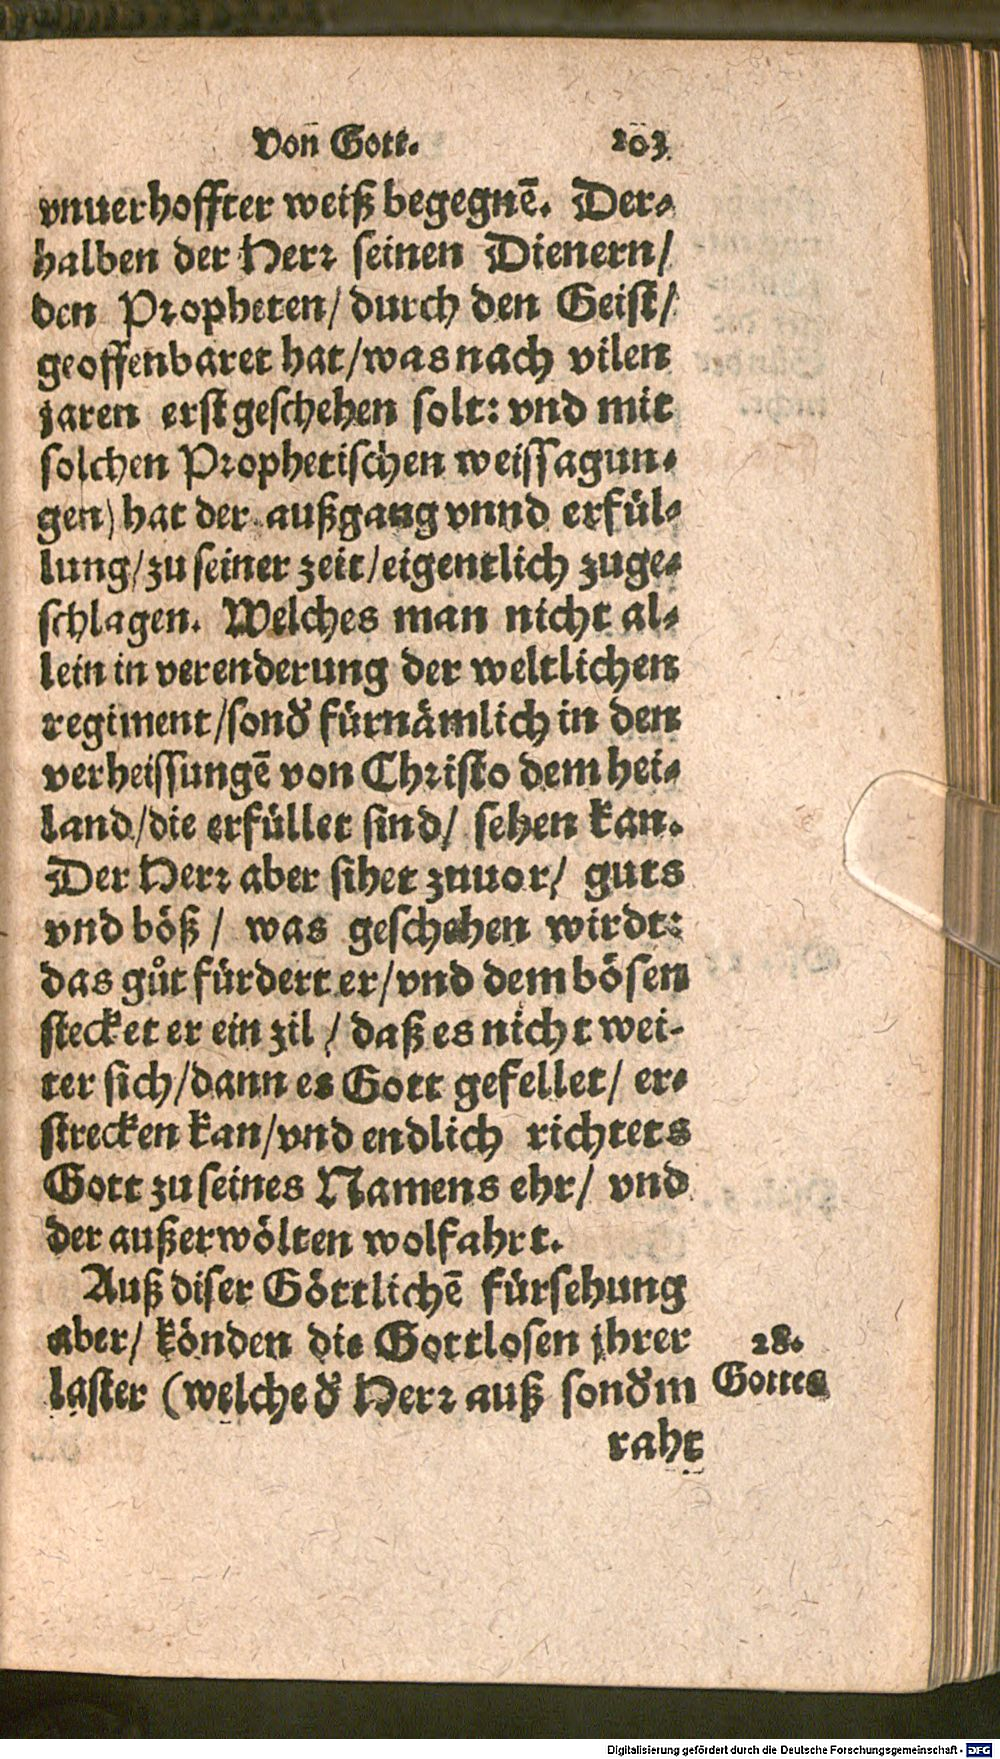 Von Gott. 203
vnuerhoffter weiß begegnē. Der⸗
halben der Herꝛ seinen Dienern/
den Pꝛopheten/ durch den Geist/
geoffenbaret hat/was nach vilen
jaren erst geschehen solt: vnd mit
solchen Pꝛophetischen weissagun⸗
gen) hat der außgang vnnd erfül⸗
lung/zu seiner zeit/eigentlich zuge⸗
schlagen. Welches man nicht al⸗
lein in verenderung der weltlichen
regiment/sonđ fürnämlich in den
verheissungē von Chꝛisto dem hei⸗
land/die erfüllet sind/ sehen kan.
Der Herꝛ aber sihet zuuor/ guts
vnd böß/ was geschehen wirdt:
das gůt fürdert er/vnd dem bösen
stecket er ein zil/ daß es nicht wei-
ter sich/dann es Gott gefellet/ er⸗
strecken kan/vnd endlich richtets
Gott zu seines Namens ehr/ vnd
der außerwölten wolfahrt.
Auß diser Göttlichē fürsehung
aber/ könden die Gottlosen jhrer
laster (welche đ Herꝛ auß sonđm
28.
Gottes
raht
Digitalisierung gefördert durch die Deutsche Forschungsgemeinschaft - DFG